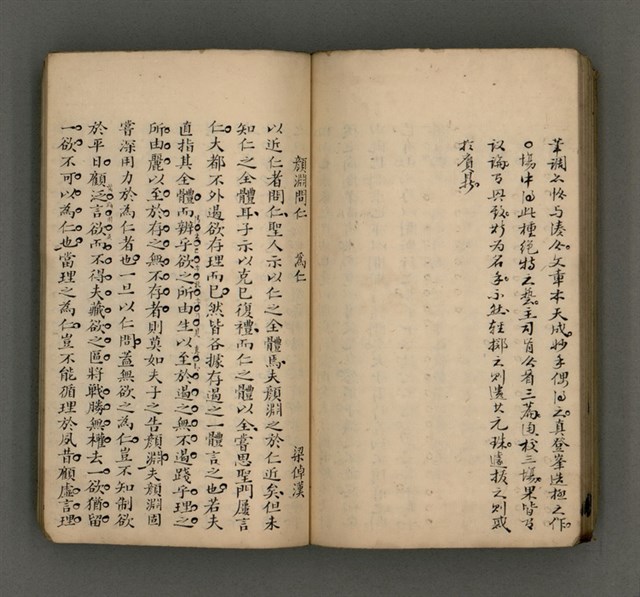 筆調之恬与湊合文章本天成妙手偶得之真登峯造極之作
○場中得此種絕特之藝主司首公看三篇自校三場果皆可
議論可與設杉为名手不然輕擲之則遺其元珠遽拔之則或
於賓興
顏淵問仁　為仁　梁倬漢
以近仁者問仁聖人示以仁之全體焉夫顏淵之於仁近矣但未
知仁之全體耳子示以克己復禮而仁之體以全嘗思聖門屢言
仁大都不外遏欲存理而已然皆各據存遏之一體言之也若夫
直指其全體而辨乎欲之所由生以至於遏之無不遏踐乎理之
所由麗以至於存之無不存者則莫如夫子之告顏淵夫顏淵固
嘗深用力於為仁者也一旦以仁問蓋無欲之為仁豈不知制欲
於平日顧泛言欲而不得夫藏欲之區將戰勝無權去一欲猶留
一欲不可以為仁也當理之為仁豈不能循理於夙昔顧虛言理